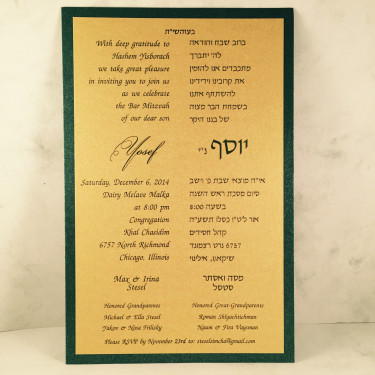 בעזהשי"ת
With deep gratitude to
Hashem Yisborach
we take great pleasure
in inviting you to join us
as we celebrate
the Bar Mitzvah
of our dear son
ברוב שבח והודאה
לה' יתברך
מתכבדים אנו להזמין
את קרובינו וידידינו
להשתתף אתנו
בשמחת הבר מצוה
של בננו היקר
Yosef
יוסף נ"י
Saturday, December 6, 2014
Dairy Melave Malka
at 8:00 pm
Congregation
Khal Chasidim
6757 North Richmond
Chicago, Illinois
אי"ה מוצאי שבת פ' וישב
סיום מסכת ראש השנה
בשעה 8:00
אור לט"ו כסלו תשע"ה
קהל חסידים
6757 נרט רצמונד
שיקאגו, אילינוי
Max & Irina
Stesel
פסח ואסתר
סטסל
Honored Grandparents
Michael & Ella Stesel
Yakov & Nina Frilisky
Honored Great-Grandparents
Roman Shkyachtichman
Naum & Fira Vaysman
Please RSVP by November 23rd to: